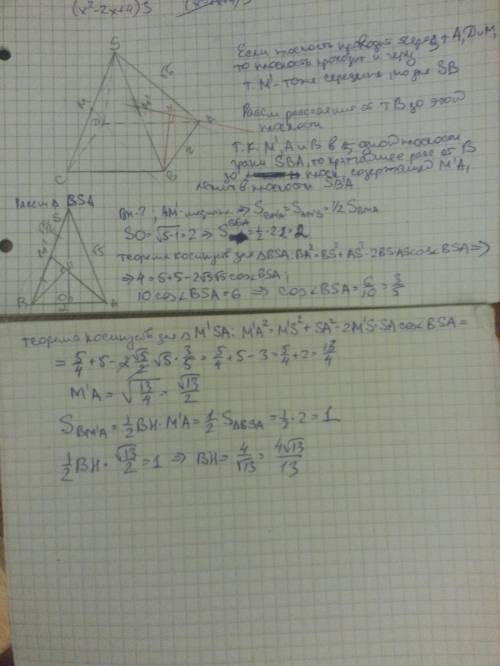 (x²-2x+4)3
Если плоскость проходит через т A, D и M,
то плоскость проходит и через
т. M' - тоже середина, но для SB
Рассм расстояние от т B до этой
плоскости
Т.К. M', A и B в одной плоскости
грани SBA, то кратчайшее расс от B
до плоск, содержащей M'A,
лежит в плоскости SBA
S
√5
M
M'
D
A
H
2
C
B
Рассм Δ BSA
S
√5
M'
H
B
O
A
2
BH-?, AM-медиана ⇒ S = S = 1/2 S
SO = √5-1 = 2 ⇒ S BSA = 1/2 · 2·2 = 2
теорема косинусов для ΔBSA: BA² = BS² + AS² - 2BS·AS cos∠BSA ⇒
⇒ 4 = 5 + 5 - 2√5√5 cos∠BSA;
10 cos∠BSA = 6 ⇒ cos∠BSA = 6/10 = 3/5
теорема косинусов для Δ M'SA: M'A² = M'S² + SA² - 2M'S·SA cos∠BSA =
= 5/4 + 5 - 2 √5/2 √5 · 3/5 = 5/4 + 5 - 3 = 5/4 + 2 = 13/4
M'A = √13/4 = √13/2
S BM'A = 1/2 BH · M'A = 1/2 S ΔBSA = 1/2 · 2 = 1
1/2 BH · √13/2 = 1 ⇒ BH = 4/√13 = 4√13/13